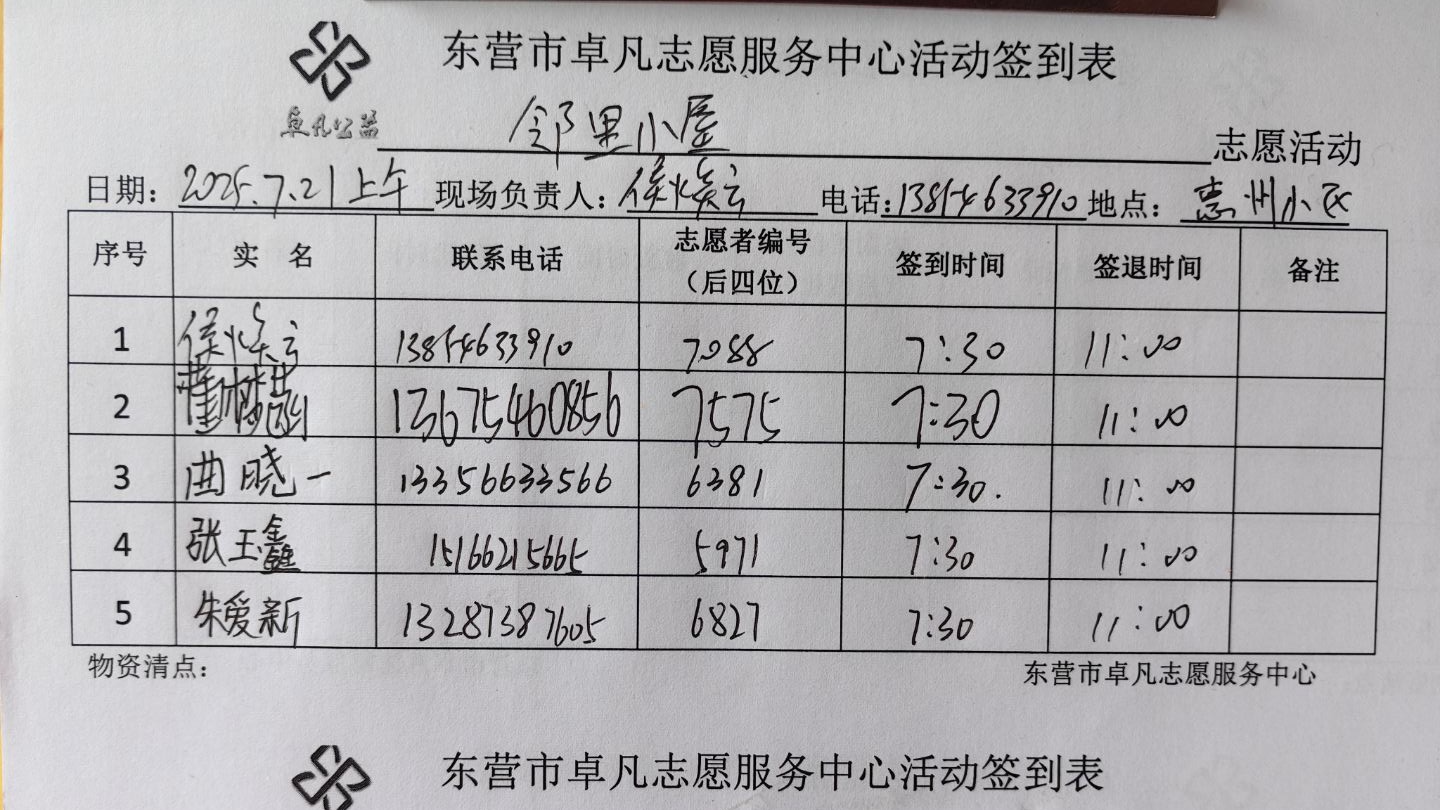 东营市卓凡志愿服务中心活动签到表
卓凡公益
邻里小屋 志愿活动
日期：2025.7.21上午 现场负责人：侯焕云 电话：13854633910 地点：惠州小区
序号 实 名 联系电话 志愿者编号（后四位） 签到时间 签退时间 备注
1 侯焕云 13854633910 7088 7:30 11:00
2 13675460856 7575 7:30 11:00
3 曲晓一 13356633566 6381 7:30. 11:00
4 张玉鑫 15166215665 5971 7:30 11:00
5 朱爱新 13287387605 6827 7:30 11:00
物资清点： 东营市卓凡志愿服务中心
东营市卓凡志愿服务中心活动签到表